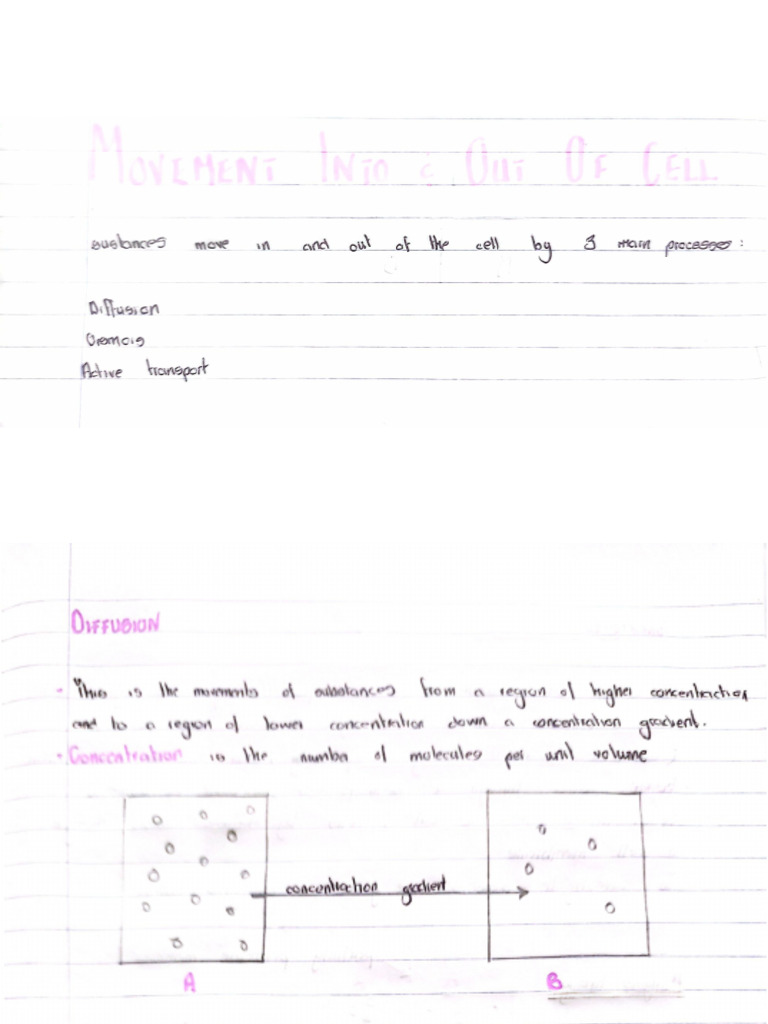 MOVEMENT INTO & OUT OF CELL
sustances move in and out of the cell by 3 main processes:
Diffusion
Osmois
Active transport
DIFFUSION
- This is the movements of substances from a region of higher concentration
and to a region of lower concentration down a concentration gradient.
- Concentration is the number of molecules per unit volume
concentration gradient
A
B